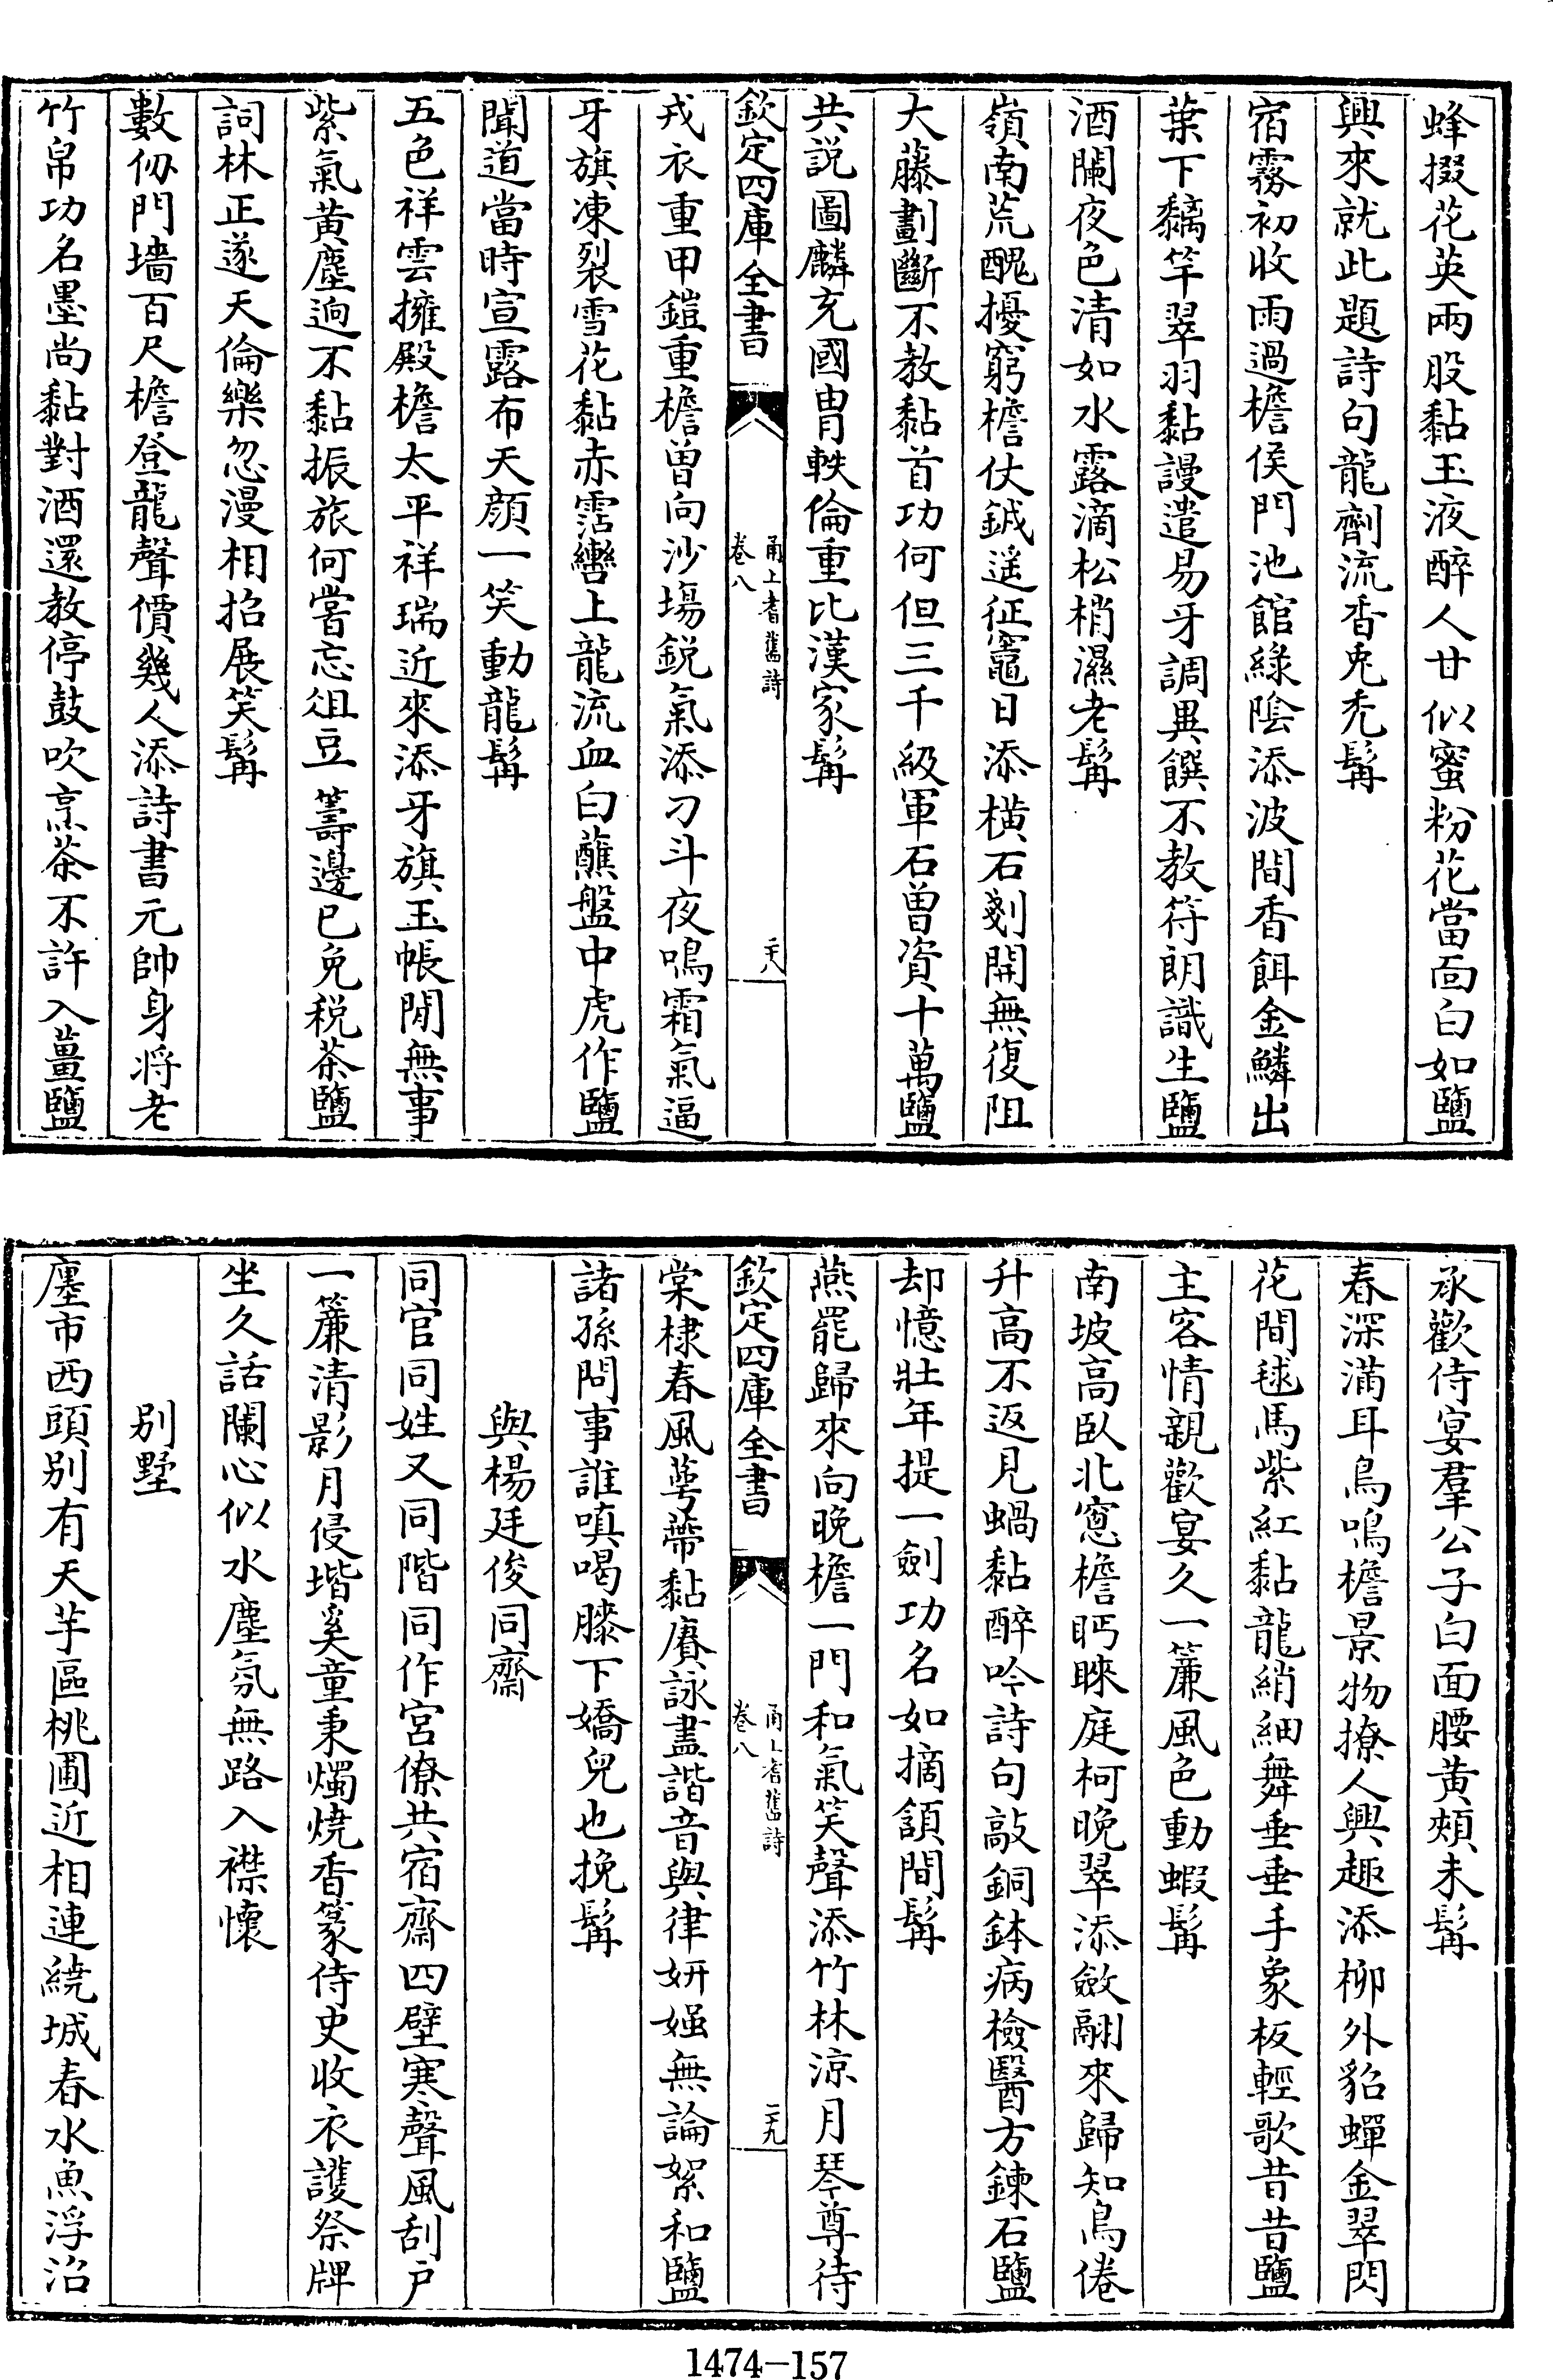 蜂掇花英兩股黏玉液醉人甘似蜜粉花當面白如鹽
興來就此題詩句龍劑流香兎禿髯
宿霧初收雨過檐侯門池館綠陰添波間香餌金鱗出
葉下黐竿翠羽黏謾遣易牙調異饌不教符朗識生鹽
酒闌夜色清如水露滴松梢濕老髯
嶺南荒醜擾窮檐仗鉞遥征竈日添横石剗開無復阻
大藤劃斷不教黏首功何但三千級軍石曽資十萬鹽
共説圖麟充國胄軼倫重比漢家髯
欽定四庫全書
甬上耆舊詩
卷八
二八
戎衣重甲鎧重檐曽向沙塲鋭氣添刁斗夜鳴霜氣逼
牙旗凍裂雪花黏赤霑轡上龍流血白蘸盤中虎作鹽
聞道當時宣露布天顔一笑動龍髯
五色祥雲擁殿檐太平祥瑞近來添牙旗玉帳閒無事
紫氣黄塵逈不黏振旅何嘗忘俎豆籌邊已免税茶鹽
詞林正遂天倫樂忽漫相招展笑髯
數仭門墻百尺檐登龍聲價幾人添詩書元帥身将老
竹帛功名墨尚黏對酒還教停鼓吹烹茶不許入薑鹽
承歡侍宴羣公子白面腰黄頰未髯
春深滿耳鳥鳴檐景物撩人興趣添柳外貂蟬金翠閃
花間毬馬紫紅黏龍綃細舞垂垂手象板輕歌昔昔鹽
主客情親歡宴久一簾風色動蝦髯
南坡高臥北窻檐眄睞庭柯晚翠添斂翮來歸知鳥倦
升高不返見蝸黏醉吟詩句敲銅鉢病檢醫方鍊石鹽
却憶壯年提一劍功名如摘頷間髯
燕罷歸來向晚檐一門和氣笑聲添竹林涼月琴尊待
欽定四庫全書
甬上耆舊詩
卷八
二九
棠棣春風萼蔕黏賡詠盡諧音與律妍媸無論絮和鹽
諸孫問事誰嗔喝膝下嬌兒也挽髯
與楊廷俊同齋
同官同姓又同階同作宮僚共宿齋四壁寒聲風刮户
一簾清影月侵堦奚童秉燭燒香篆侍史收衣護祭牌
坐久話闌心似水塵氛無路入襟懷
别墅
廛市西頭别有天芋區桃圃近相連繞城春水魚浮沼
1474-157